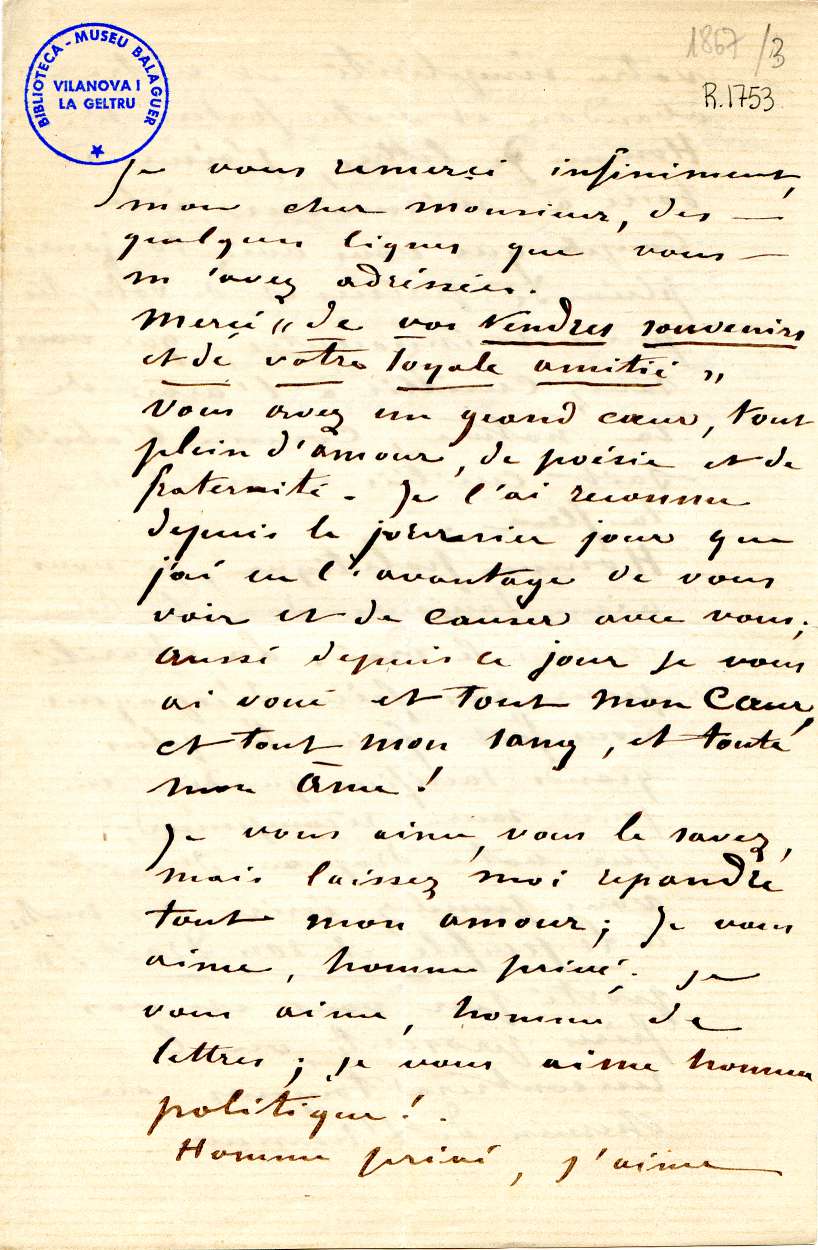 BIBLIOTECA - MUSEU BALAGUER
VILANOVA I
LA GELTRU
1867/3
R.1753
Je vous remerçi infiniment,
mon cher monsieur, des —
quelques lignes que vous —
m'avez adréssées.
Merçi "de vos tendres souvenirs
et de votre loyale amitié"
Vous avez un grand cœur, tout
plein d'amour, de poésie et de
fraternité. Je l'ai reconnu
depuis le premier jour que
j'ai eu l'avantage de vous
voir et de causer avec vous;
aussi depuis ce jour je vous
ai voué et tout mon Cœur,
et tout mon sang, et toute
mon âme!
Je vous aime, vous le savez,
mais laissez moi repandre
tout mon amour; Je vous
aime, homme privé; je
vous aime, homme de
lettres; je vous aime homme
politique!
Homme privé, j'aime